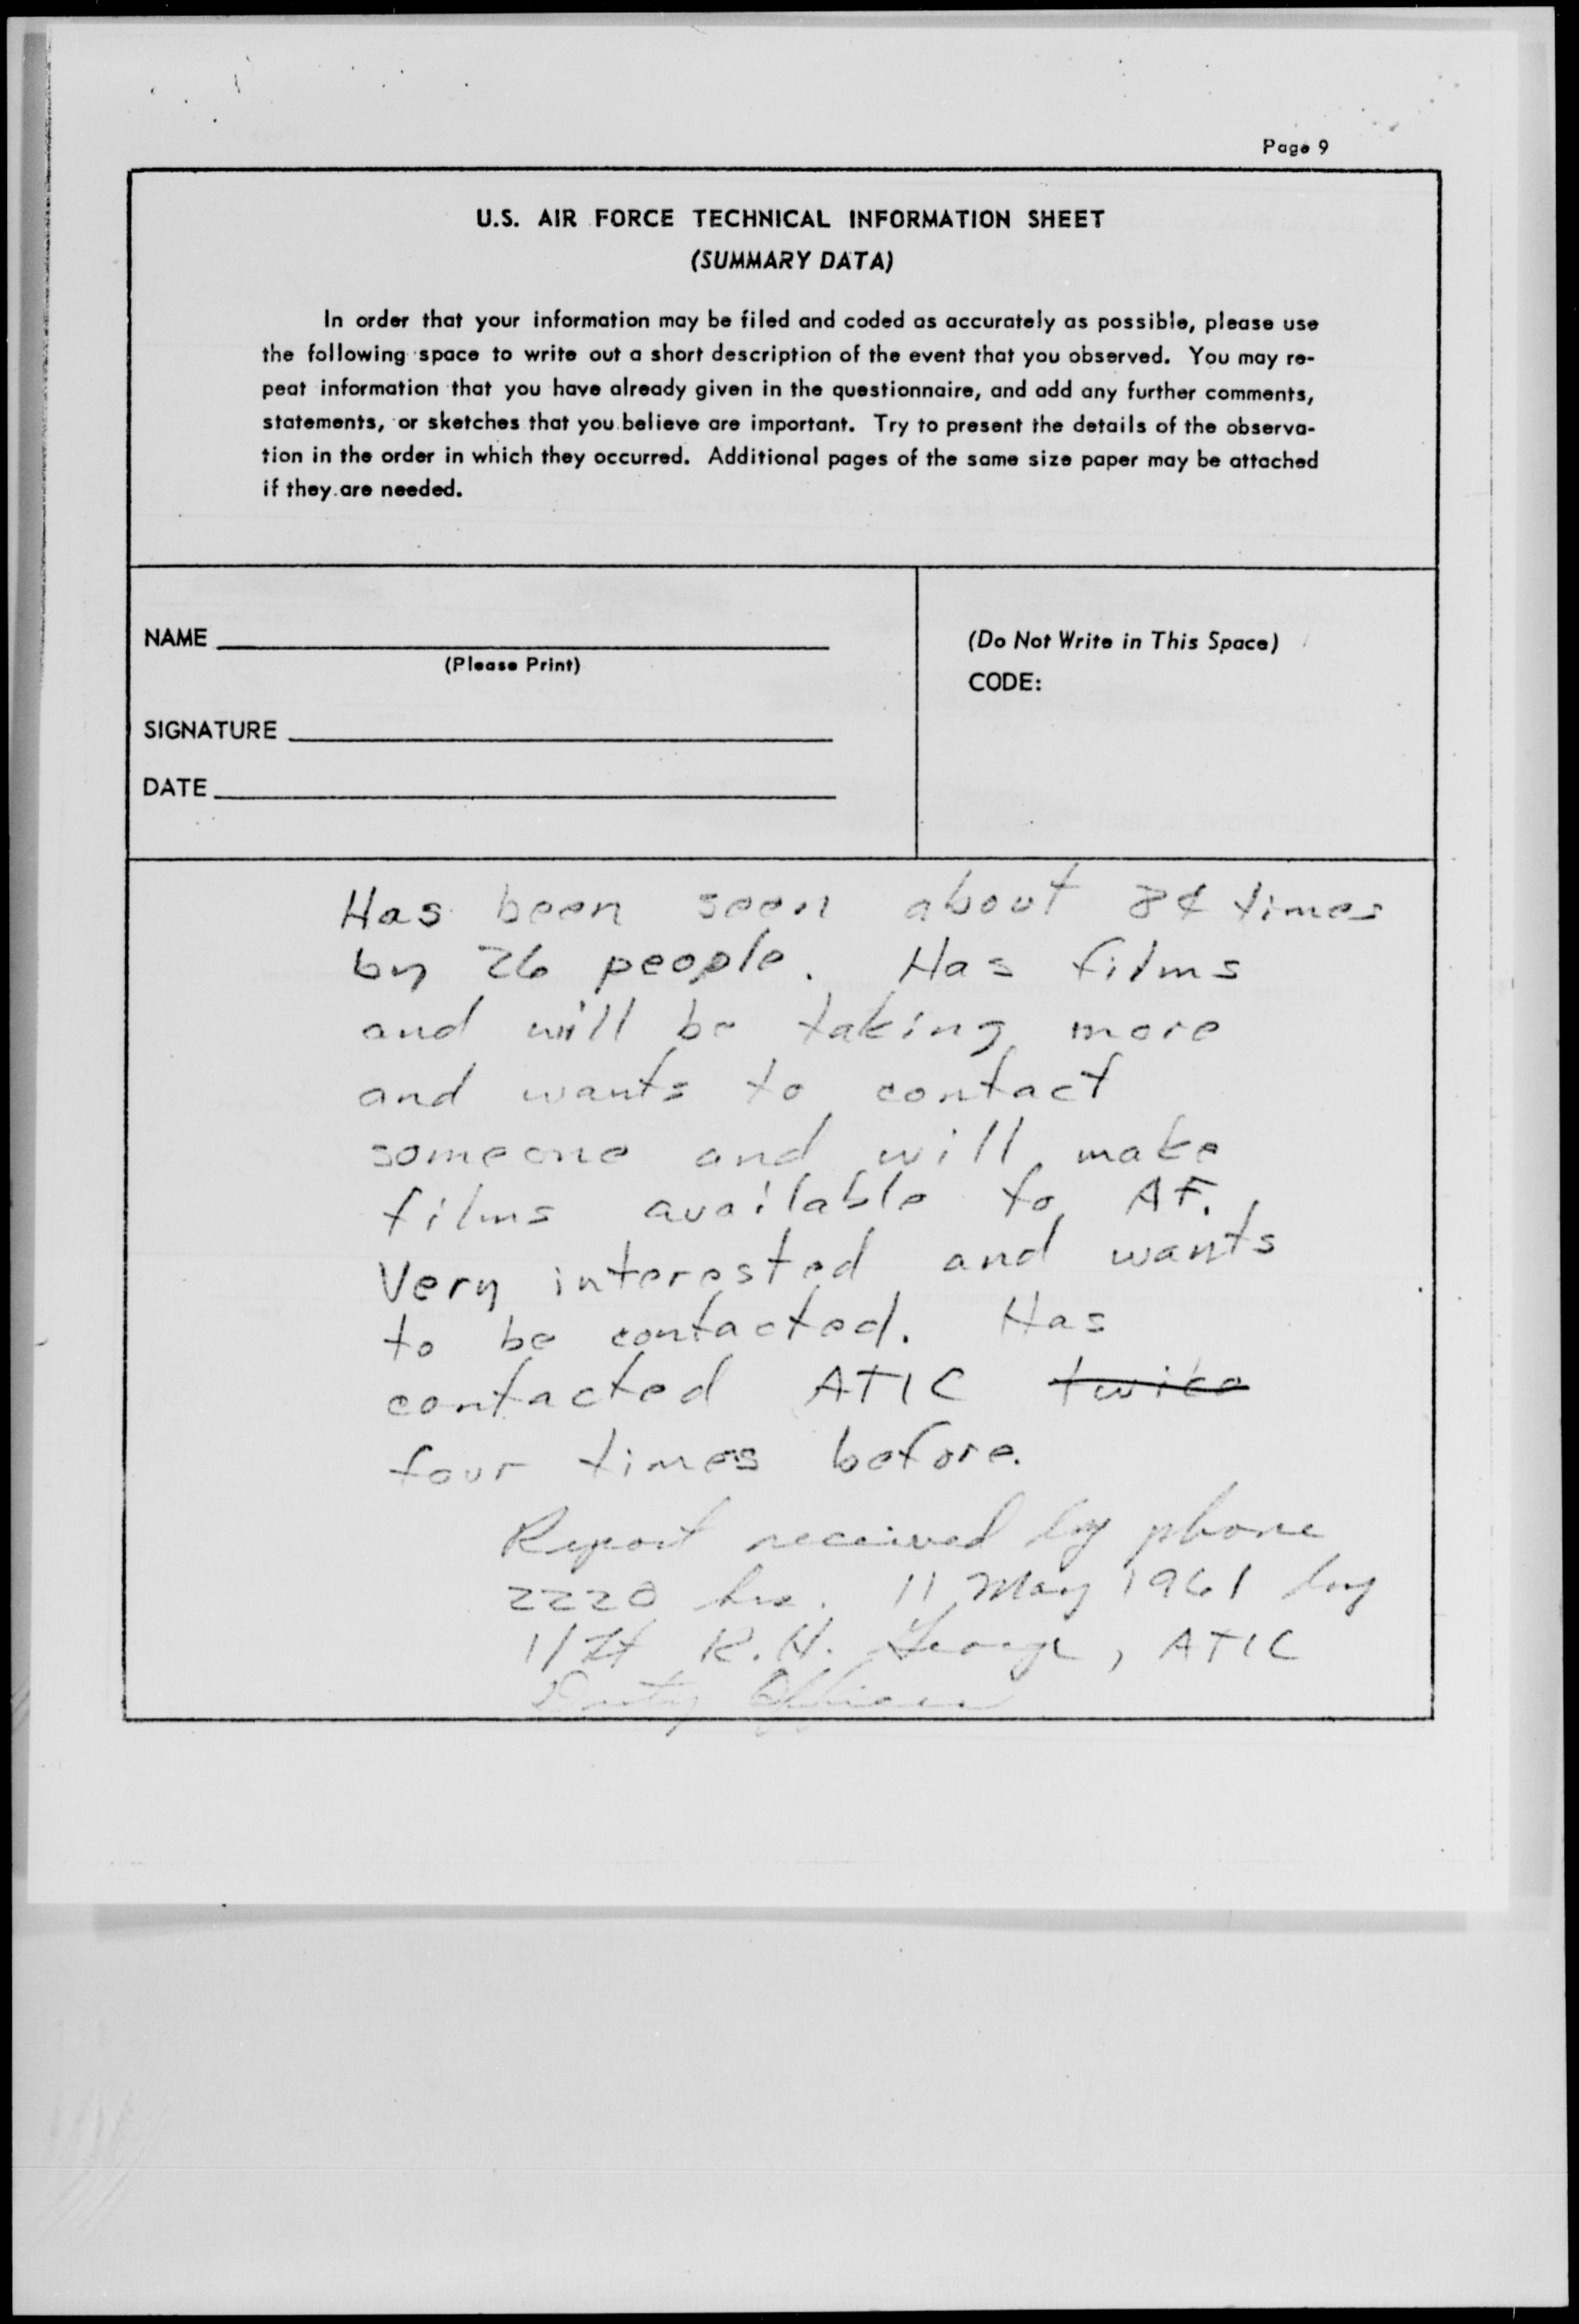 Page 9
U.S. AIR FORCE TECHNICAL INFORMATION SHEET
(SUMMARY DATA)
In order that your information may be filed and coded as accurately as possible, please use
the following space to write out a short description of the event that you observed. You may re-
peat information that you have already given in the questionnaire, and add any further comments,
statements, or sketches that you believe are important. Try to present the details of the observa-
tion in the order in which they occurred. Additional pages of the same size paper may be attached
if they are needed.
NAME
(Please Print)
SIGNATURE
DATE
(Do Not Write in This Space)
CODE:
Has been seen about times
by 26 people. Has films
and will be taking more
and wants to contact
someone and will make
films available to AF.
Very interested and wants
to be contacted. Has
contacted ATIC twice
four times before.
Report received by phone
2220 hrs. 11 May 1961 by
1/Lt R.H. George, ATIC
Duty Officer